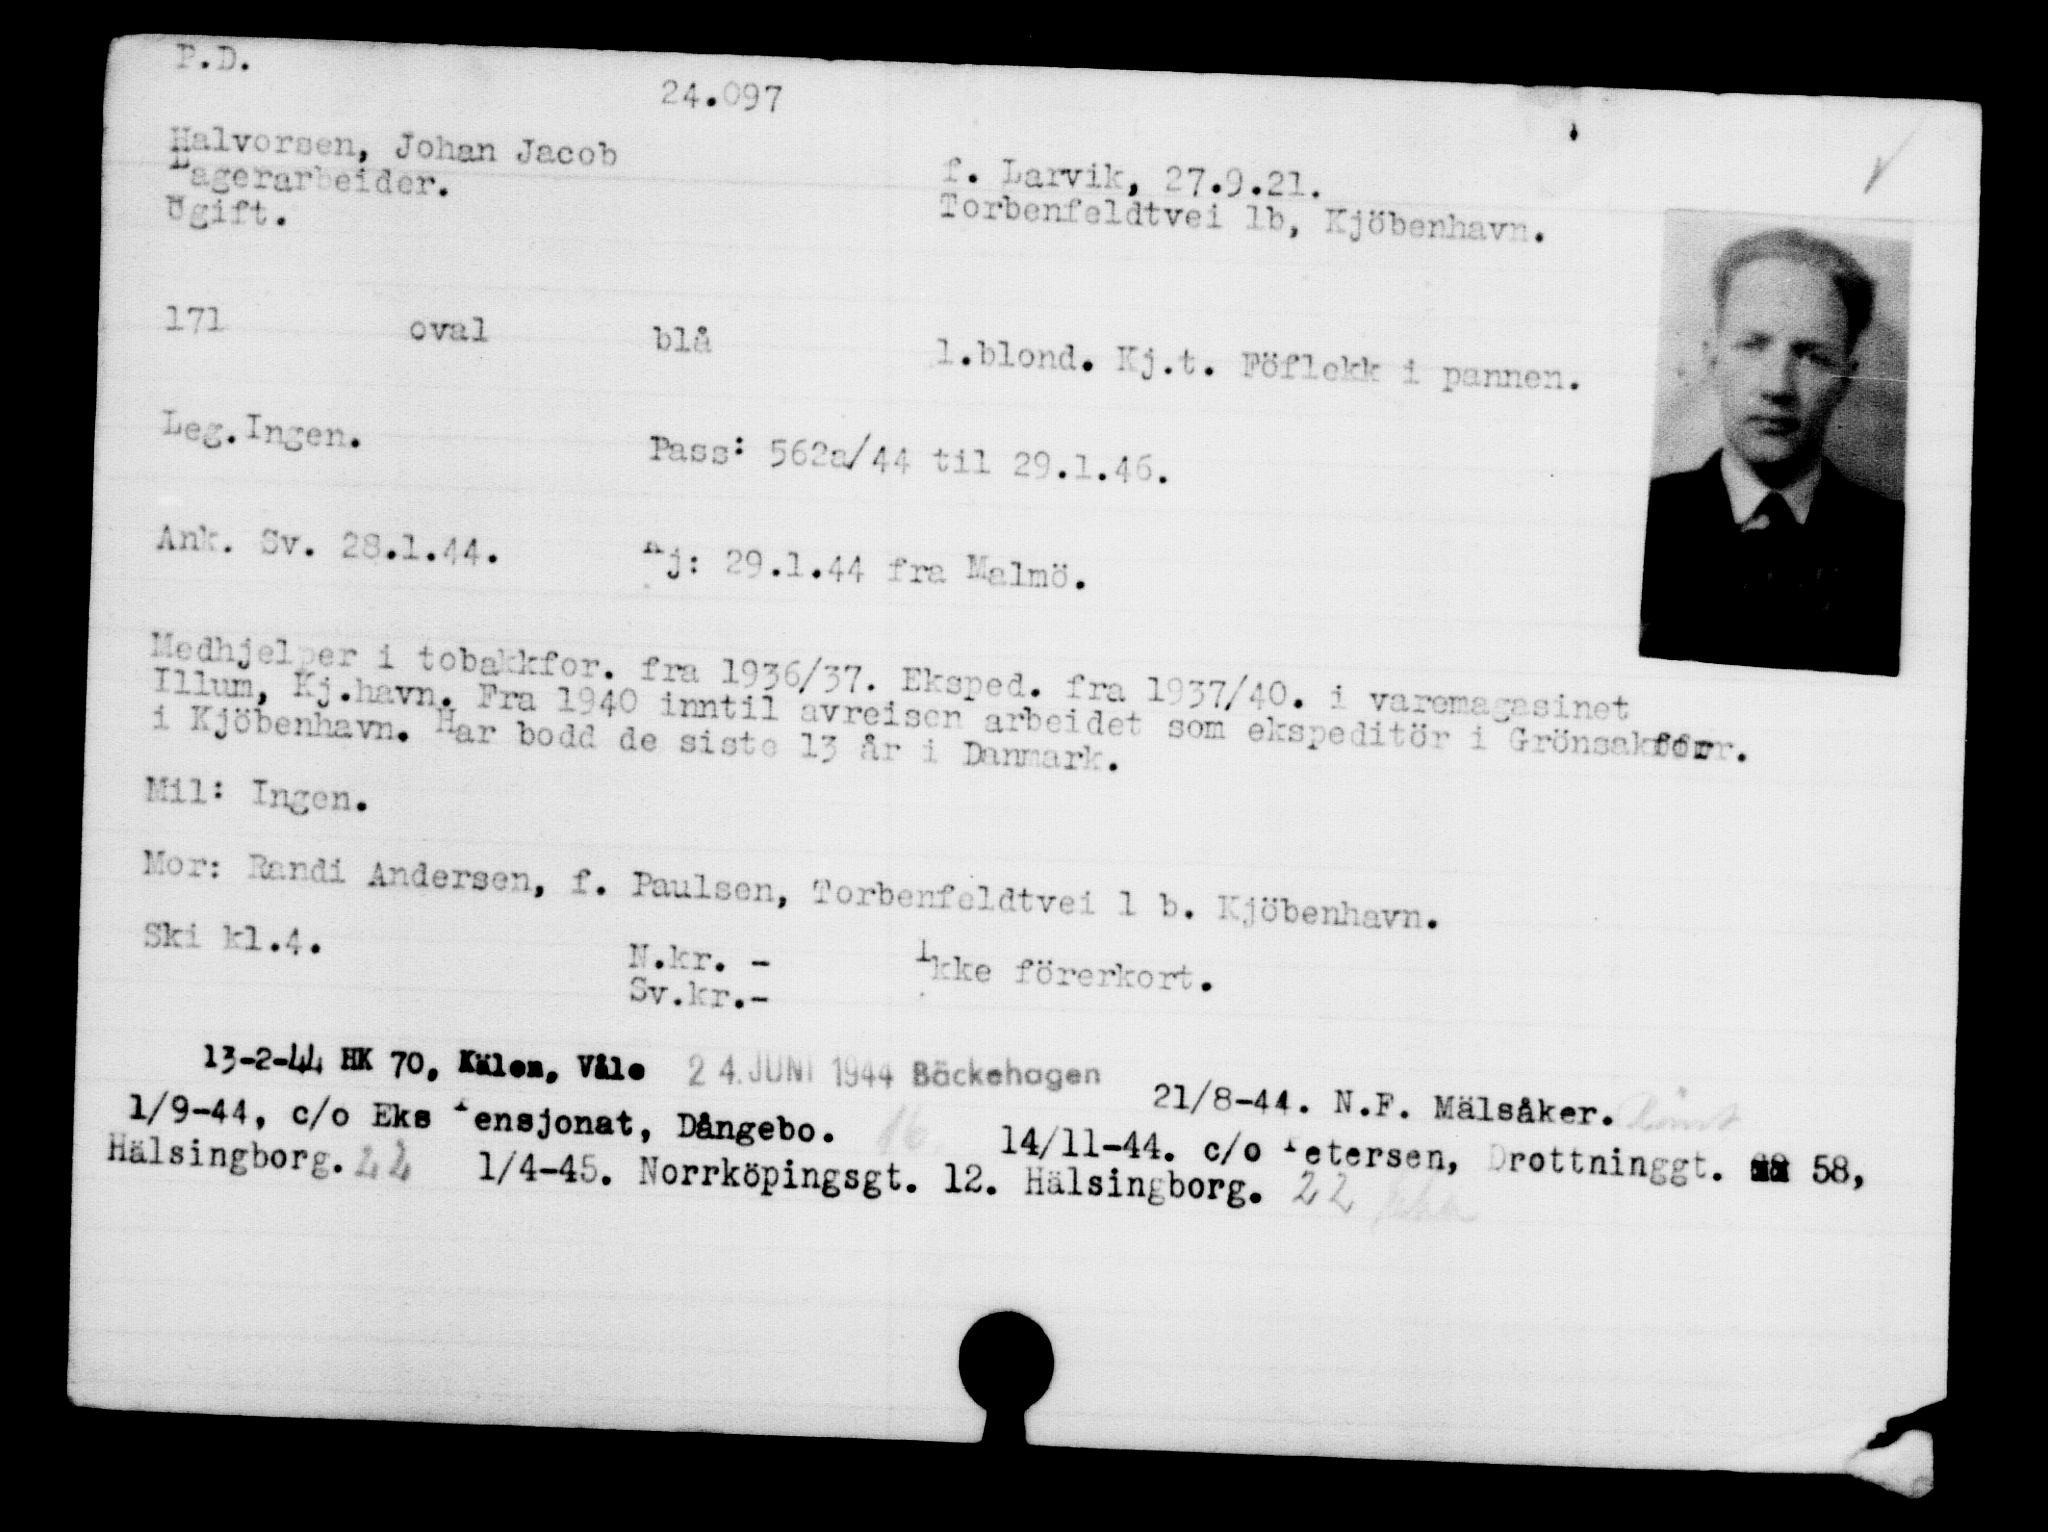 P.D.
24.097
Halvorsen, Johan Jacob
Lagerarbeider.
Ugift.
f. Larvik, 27.9.21.
Torbenfeldtvei 1b, Kjöbenhavn.
171 oval blå l.blond. Kj.t. Föflekk i pannen.
Leg. Ingen. Pass: 562a/44 til 29.1.46.
Ank. Sv. 28.1.44. Kj: 29.1.44 fra Malmö.
Medhjelper i tobakkfor. fra 1936/37. Eksped. fra 1937/40. i varemagasinet
Illum, Kj.havn. Fra 1940 inntil avreisen arbeidet som ekspeditör i Grönsakforr.
i Kjöbenhavn. Har bodd de siste 13 år i Danmark.
Mil: Ingen.
Mor: Randi Andersen, f. Paulsen, Torbenfeldtvei 1 b. Kjöbenhavn.
Ski kl.4. N.kr. - Ikke förerkort.
Sv.kr.-
13-2-44 HK 70, Kälen, Våle 24. JUNI 1944 Bäckehagen 21/8-44. N.F. Mälsåker.
1/9-44, c/o Eks Pensjonat, Dångebo. 16. 14/11-44. c/o Petersen, Drottninggt. 58,
Hälsingborg. 22 1/4-45. Norrköpingsgt. 12. Hälsingborg. 22